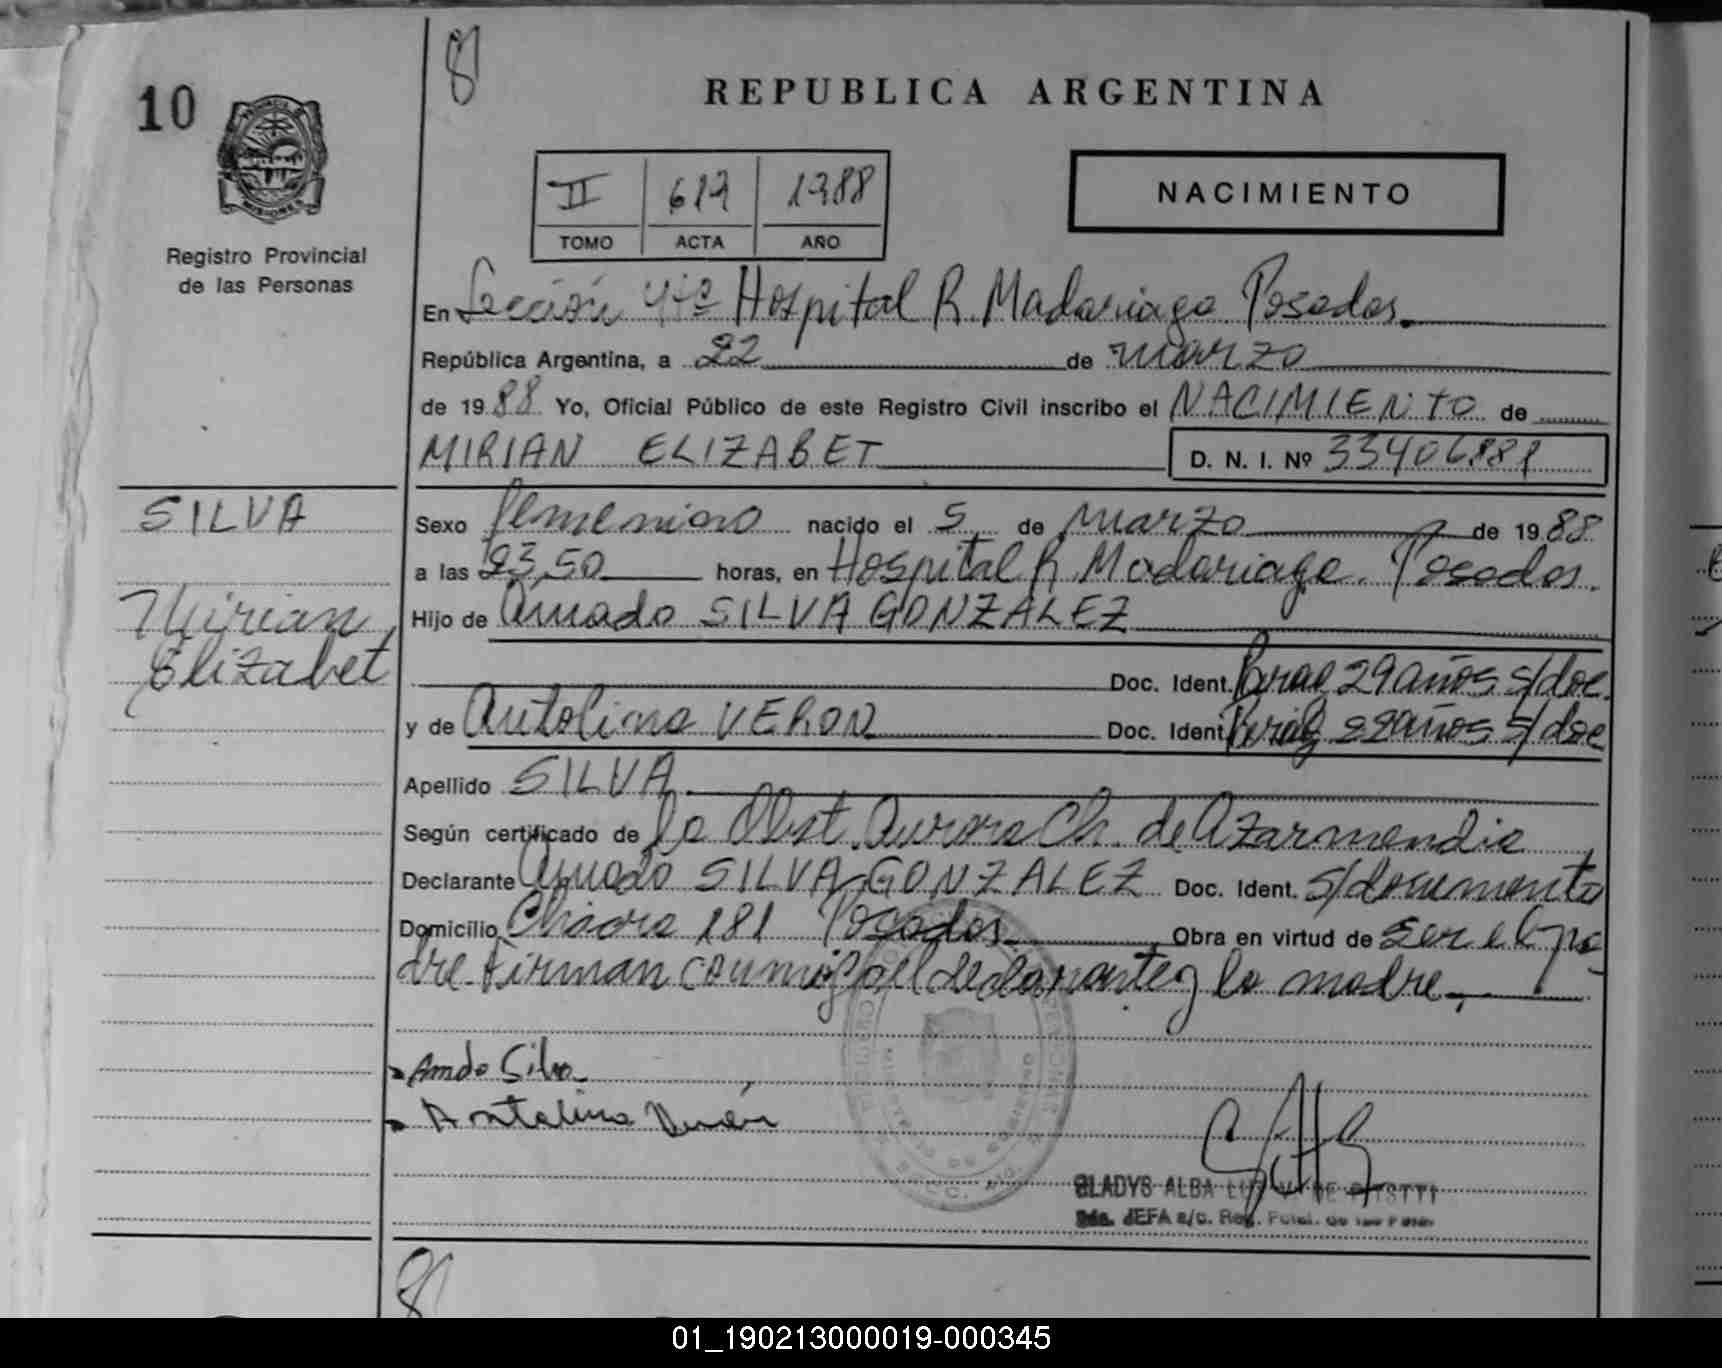 10
8
REPUBLICA ARGENTINA
PROVINCIA DE
MISIONES
Registro Provincial
de las Personas
II 617 1988
TOMO ACTA AÑO
NACIMIENTO
En Sección 4ta Hospital R. Madariaga Posadas
República Argentina, a 22 de marzo
de 1988 Yo, Oficial Público de este Registro Civil inscribo el NACIMIENTO de
MIRIAN ELIZABET D. N. I. Nº 33406881
SILVA
Mirian
Elizabet
Sexo femenino nacido el 5 de marzo de 1988
a las 23,50 horas, en Hospital R. Madariaga. Posadas.
Hijo de Amado SILVA GONZALEZ
Doc. Ident. Bras 29 años s/doc.
y de Antolina VERON Doc. Ident. Bras 22 años s/doc
Apellido SILVA
Según certificado de la Obst. Aurora Ch. de Azarmendia
Declarante Amado SILVA GONZALEZ Doc. Ident. s/documento
Domicilio Chacra 181 Posadas Obra en virtud de ser el pa-
dre. Firman conmigo el declarante y la madre.
Amdo Silva
Antolina Verón
GLADYS ALBA
JEFA a/c. Reg.
8
01_190213000019-000345